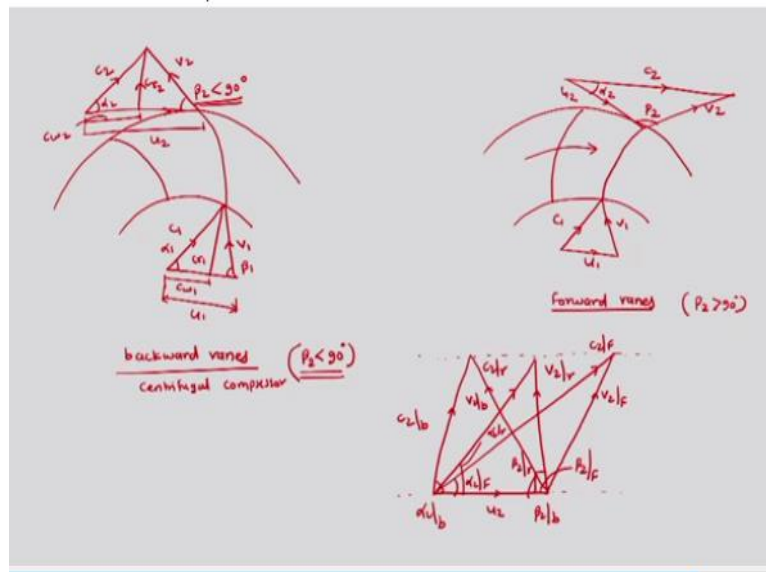 c2
v2
cr2
α2
β2 < 90°
cw2
u2
c1
v1
α1
cr1
β1
cw1
u1
backward vanes (β2 < 90°)
centrifugal compressor
c2
α2
u2
β2
v2
c1
v1
u1
forward vanes (β2 > 90°)
c2/F
c2/r
v2/r
v2/b
v2/F
c2/b
α2/r
α2/F
β2/r
β2/F
α2/b
u2
β2/b